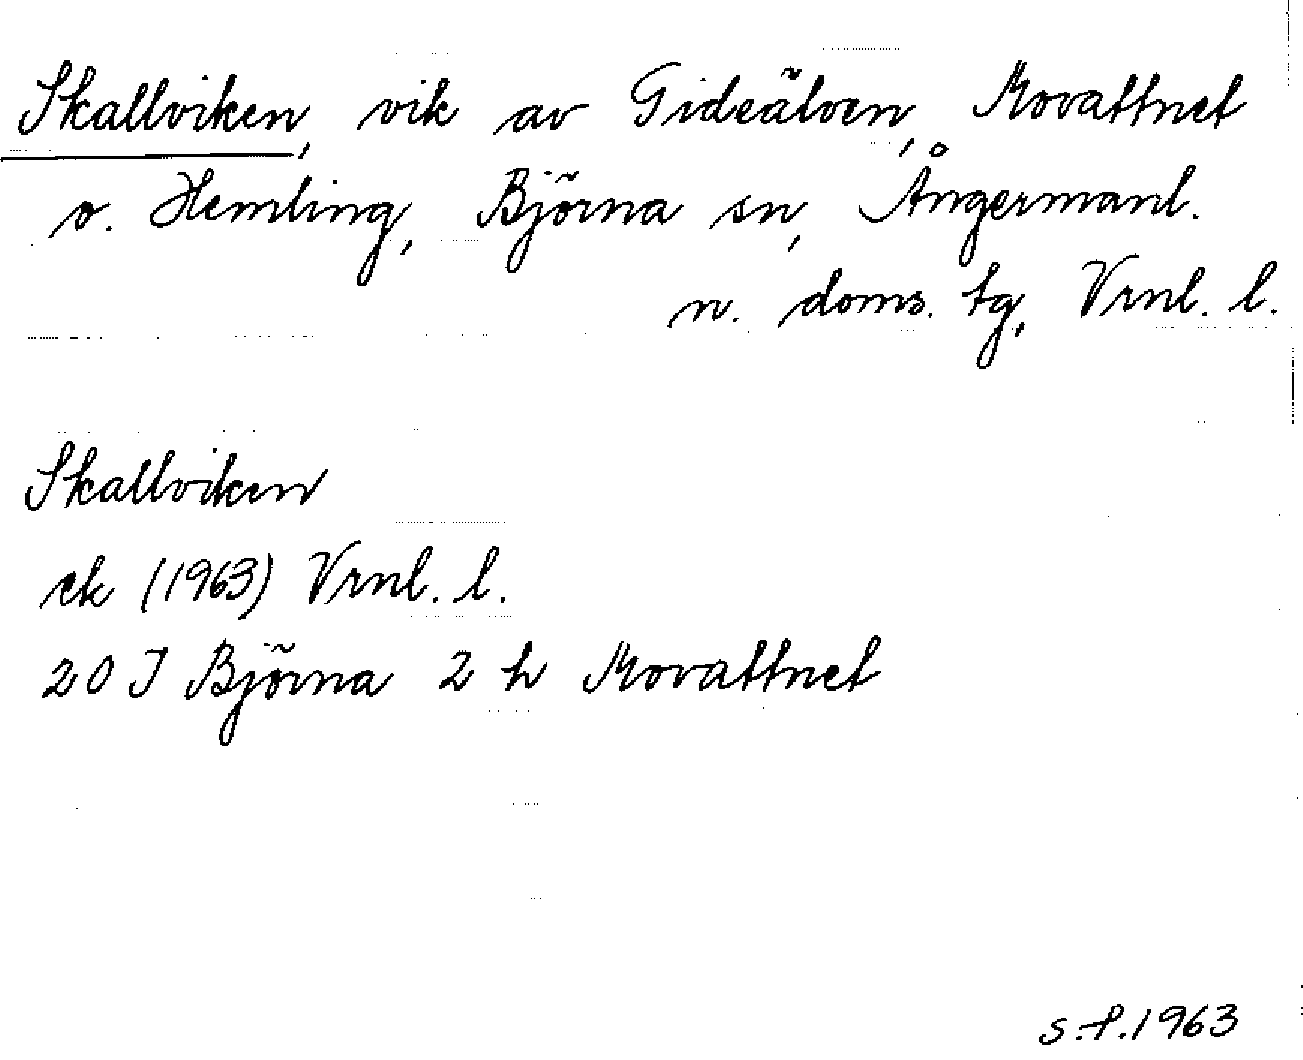 Skallviken, vik av Gideälven, Movattnet
o. Hemling, Björna sn, Ångermanl.
n. doms. tg, Vrnl. l.
Skallviken
ek (1963) Vrnl. l.
20 I Björna 2 h Movattnet
S.-f. 1963